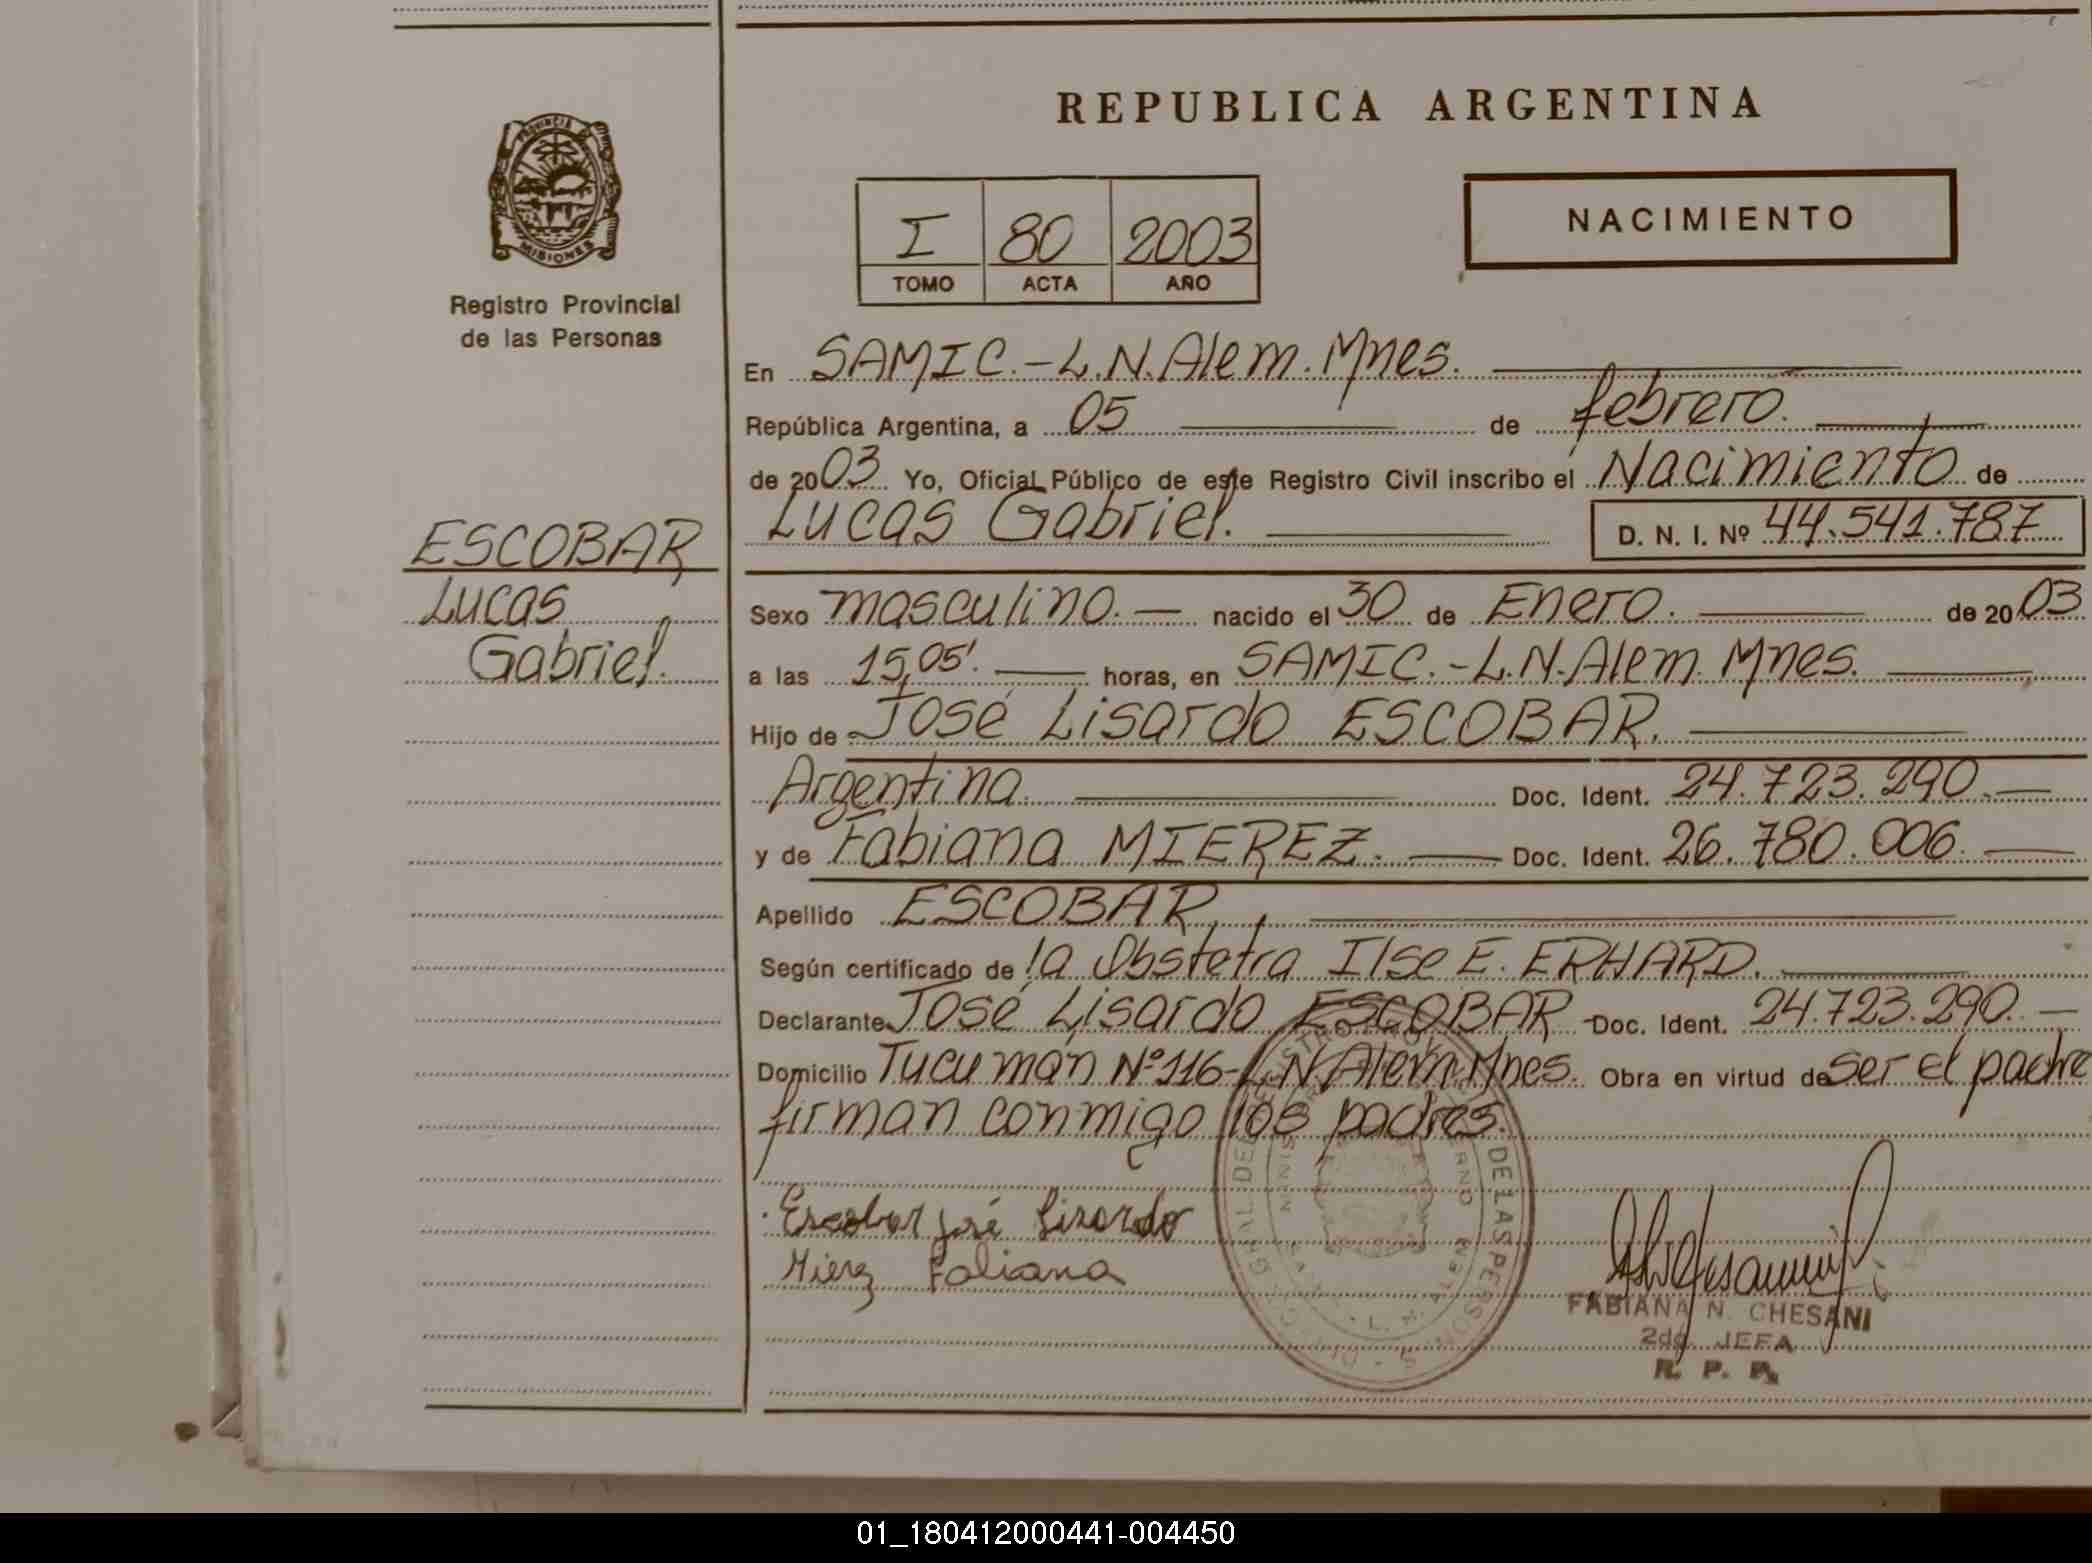 REPUBLICA ARGENTINA
PROVINCIA DE
MISIONES
Registro Provincial
de las Personas
I 80 2003
TOMO ACTA AÑO
NACIMIENTO
ESCOBAR
Lucas
Gabriel.
En SAMIC.-L.N.Alem.Mnes.
República Argentina, a 05 de febrero.
de 2003 Yo, Oficial Público de este Registro Civil inscribo el Nacimiento de
Lucas Gabriel. D. N. I. Nº 44.541.787
Sexo masculino.— nacido el 30 de Enero. de 2003
a las 15,05'. horas, en SAMIC.-L.N.Alem. Mnes.
Hijo de José Lisardo ESCOBAR.
Argentina. Doc. Ident. 24.723.290.—
y de Fabiana MIEREZ. — Doc. Ident. 26.780.006.
Apellido ESCOBAR.
Según certificado de la Obstetra Ilse E. ERHARD.
Declarante José Lisardo ESCOBAR - Doc. Ident. 24.723.290.—
Domicilio Tucumán Nº116-L.N.Alem.Mnes. Obra en virtud de ser el padre
firman conmigo los padres.
Escobar José Lisardo
Mierez Fabiana
DE LAS PERSONAS
L. N. ALEM
FABIANA N. CHESANI
2da. JEFA
R. P. P.
01_180412000441-004450